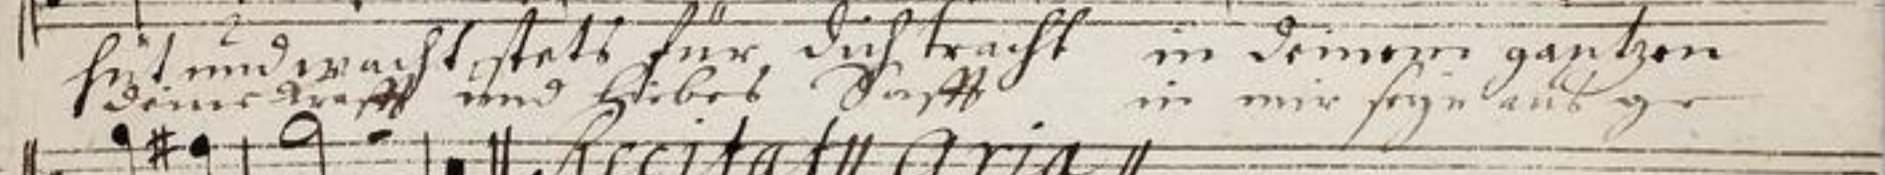 hüt und wacht, stets für dich tracht in deinem gantzen
deine Krafft und Liebes Safft in mir seye aus ge
Recitat Aria